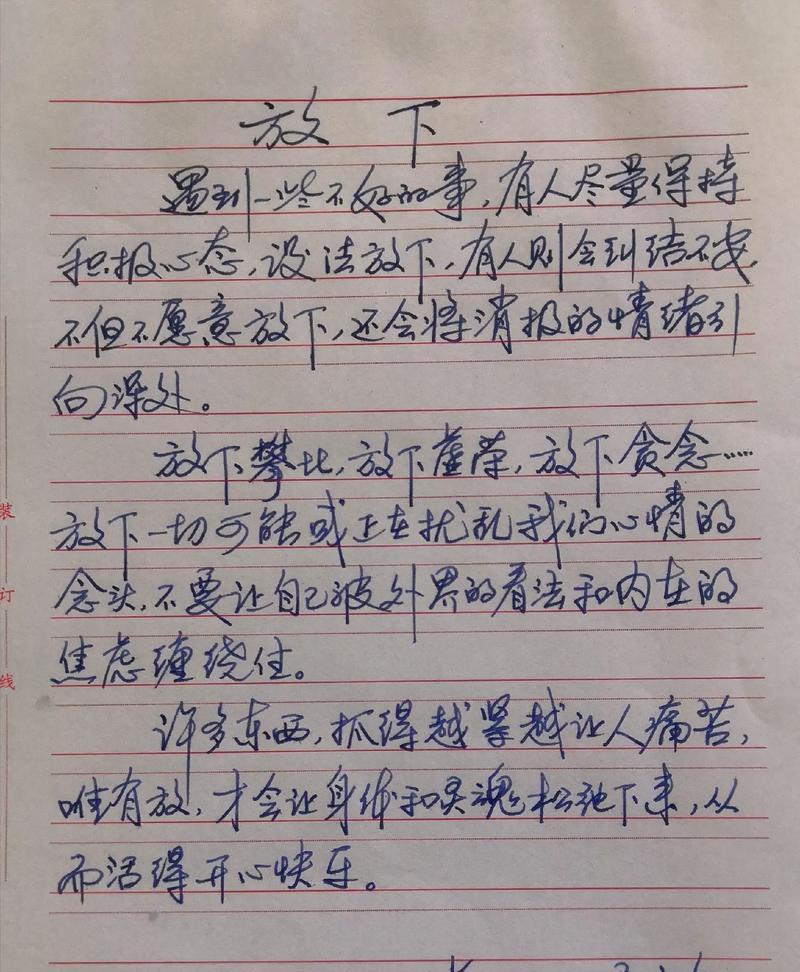 放下
遇到一些不好的事,有人尽量保持
积极心态,设法放下,有人则会纠结不安,
不但不愿意放下,还会将消极的情绪引
向深处。
放下攀比,放下虚荣,放下贪念……
放下一切可能或正在扰乱我们心情的
念头,不要让自己被外界的看法和内在的
焦虑缠绕住。
许多东西,抓得越紧越让人痛苦,
唯有放,才会让身体和灵魂松弛下来,从
而活得开心快乐。
装
订
线